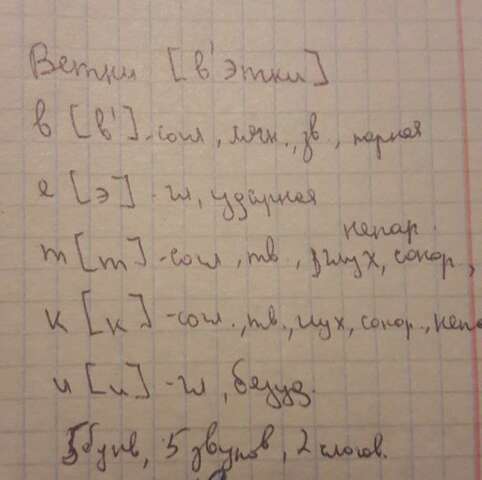 Ветки [в'этки]
в [в'] - согл, мягк., зв, парная
е [э] - гл, ударная
непар
т [т] - согл, тв, глух, сонор,
к [к] - согл., тв., глух, сонор., непа
и [и] - гл, безуд.
5 букв, 5 звуков, 2 слогов.